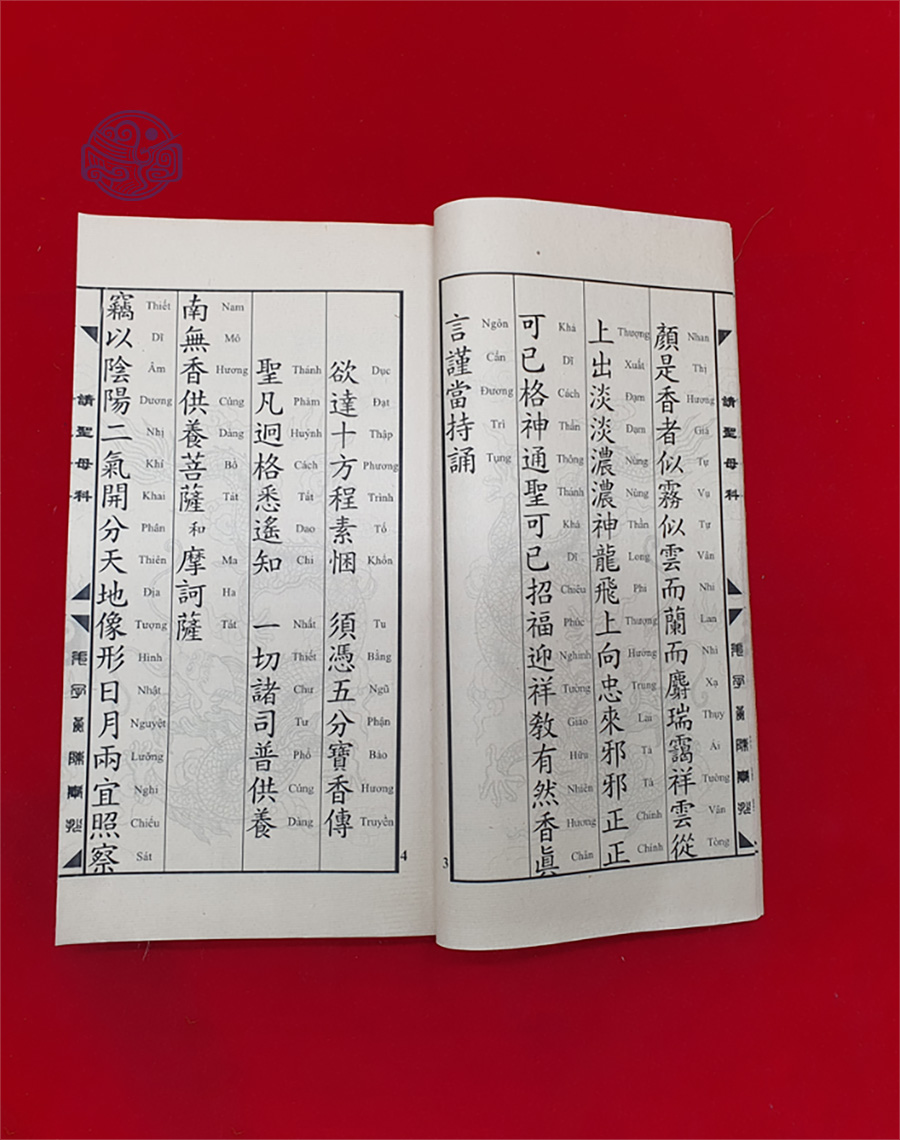 請聖母科
顏是香者似霧似雲而蘭而麝瑞靄祥雲從
Nhan Thị Hương Giả Tự Vụ Tự Vân Nhi Lan Nhi Xạ Thụy Ái Tường Vân Tòng
上出淡淡濃濃神龍飛上向忠來邪邪正正
Thượng Xuất Đạm Đạm Nùng Nùng Thần Long Phi Thượng Hướng Trung Lai Tà Tà Chính Chính
可已格神通聖可已招福迎祥教有然香眞
Khả Dĩ Cách Thần Thông Thánh Khả Dĩ Chiêu Phúc Nghinh Tường Giáo Hữu Nhiên Hương Chân
言謹當持誦
Ngôn Cẩn Đương Trì Tụng
3
4
欲達十方程素悃 須憑五分寶香傳
Dục Đạt Thập Phương Trình Tố Khổn Tu Bằng Ngũ Phận Bảo Hương Truyền
聖凡迥格悉遙知 一切諸司普供養
Thánh Phàm Huỳnh Cách Tất Dao Chi Nhất Thiết Chư Tư Phổ Cúng Dàng
南無香供養菩薩和摩訶薩
Nam Mô Hương Cúng Dàng Bồ Tát Ma Ha Tát
竊以陰陽二氣開分天地像形日月兩宜照察
Thiết Dĩ Âm Dương Nhị Khí Khai Phân Thiên Địa Tượng Hình Nhật Nguyệt Lưỡng Nghi Chiếu Sát
請聖母科